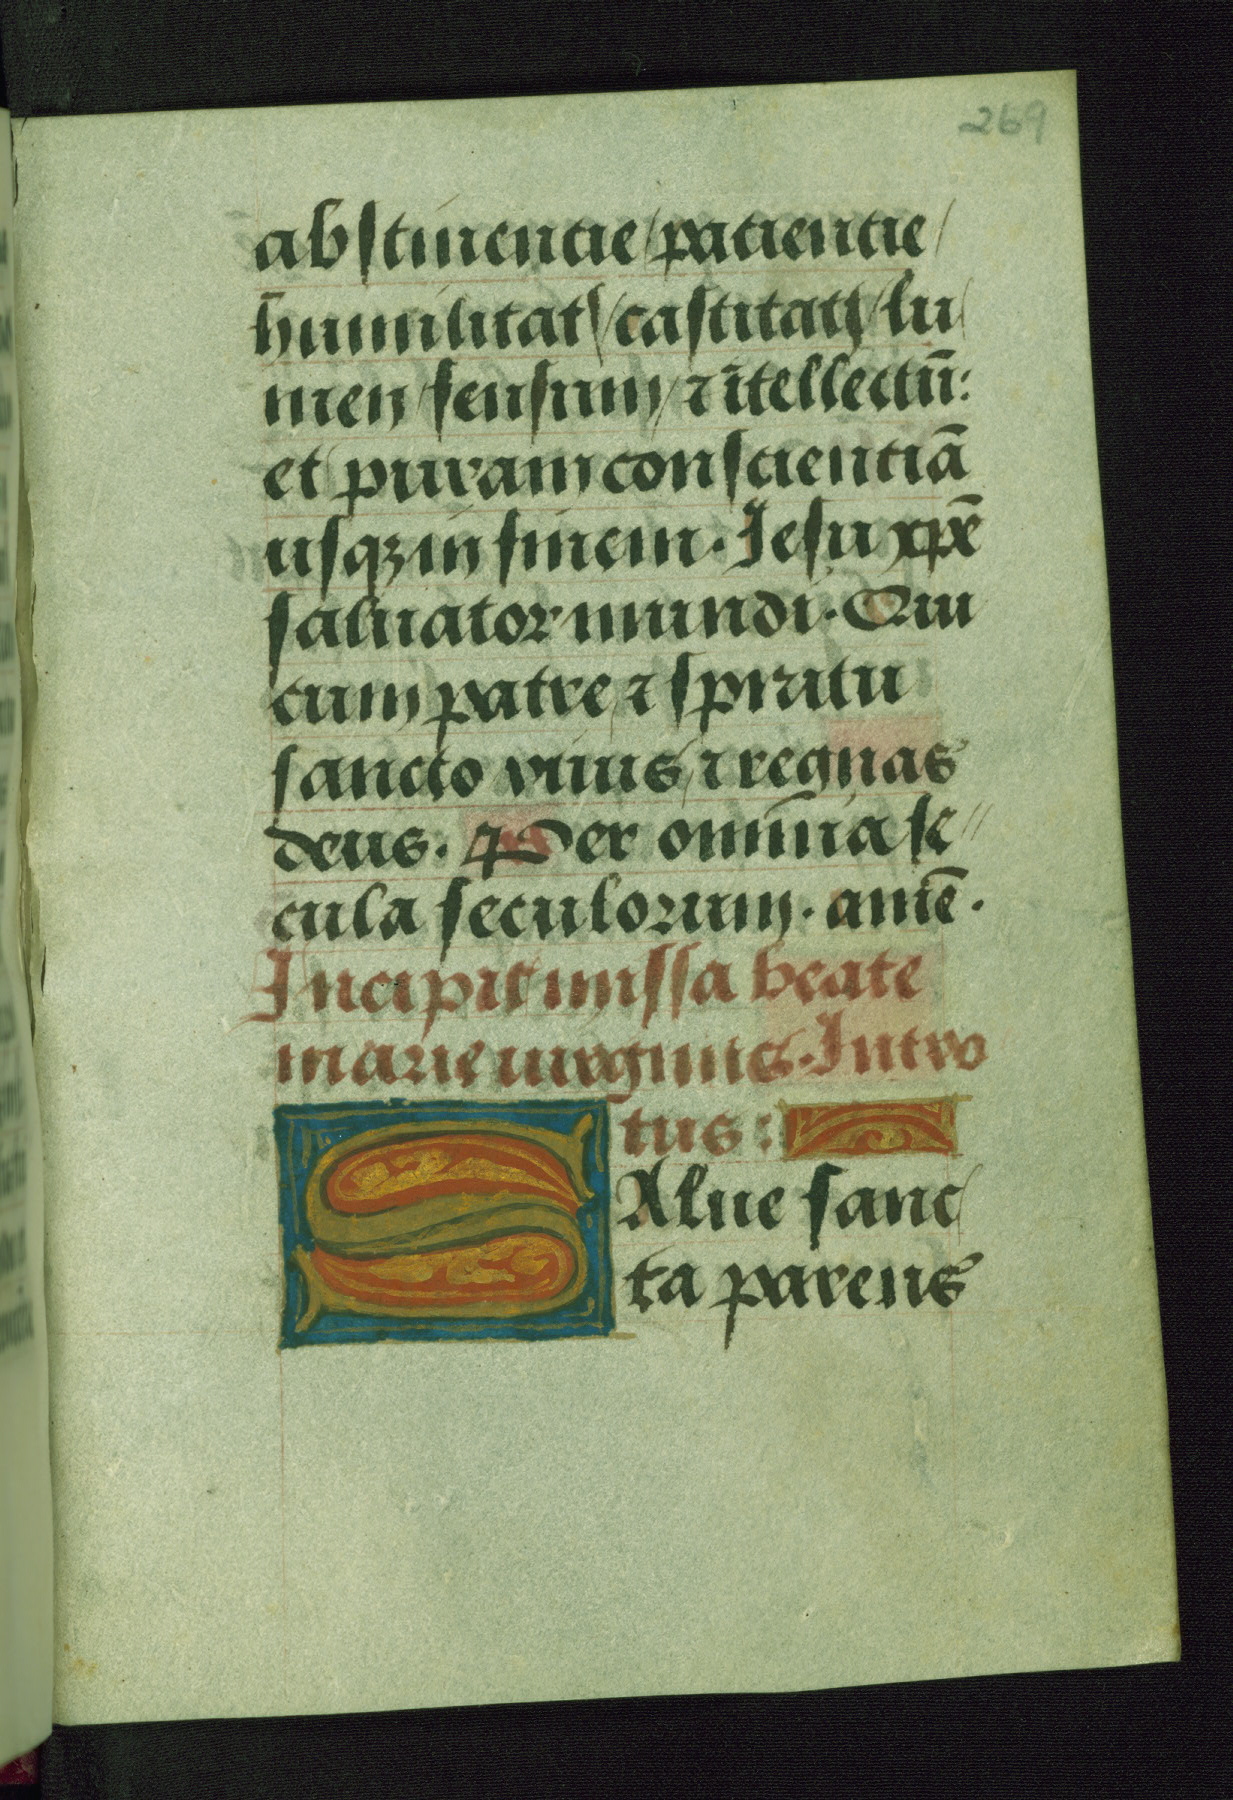 269
abstinentie / patientie /
humilitatꝭ / castitatꝭ / lu
men / sensum / ⁊ ītellectū:
et puram conscientiā
usqꝫ in finem. Jesu xpē
saluator mundi. Qui
cum patre ⁊ spiritu
sancto viuis / ⁊ regnas
deus. Per omnia se//
cula seculorum. amē.
Incipit missa beate
marie uirginis. Intro
tus:
SAlue sanc
ta parens